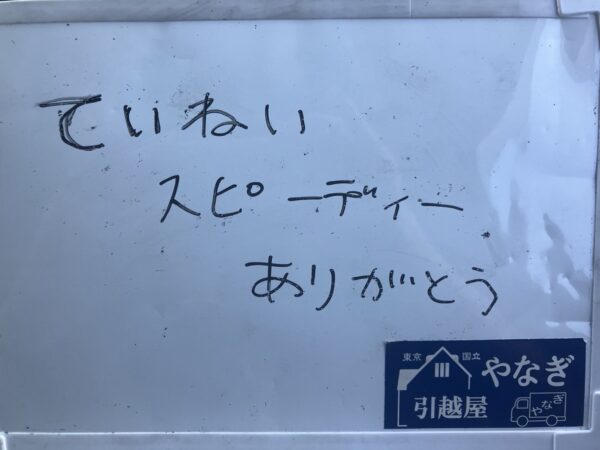 ていねい
スピーディー
ありがとう
東京 国立 やなぎ
引越屋 やなぎ